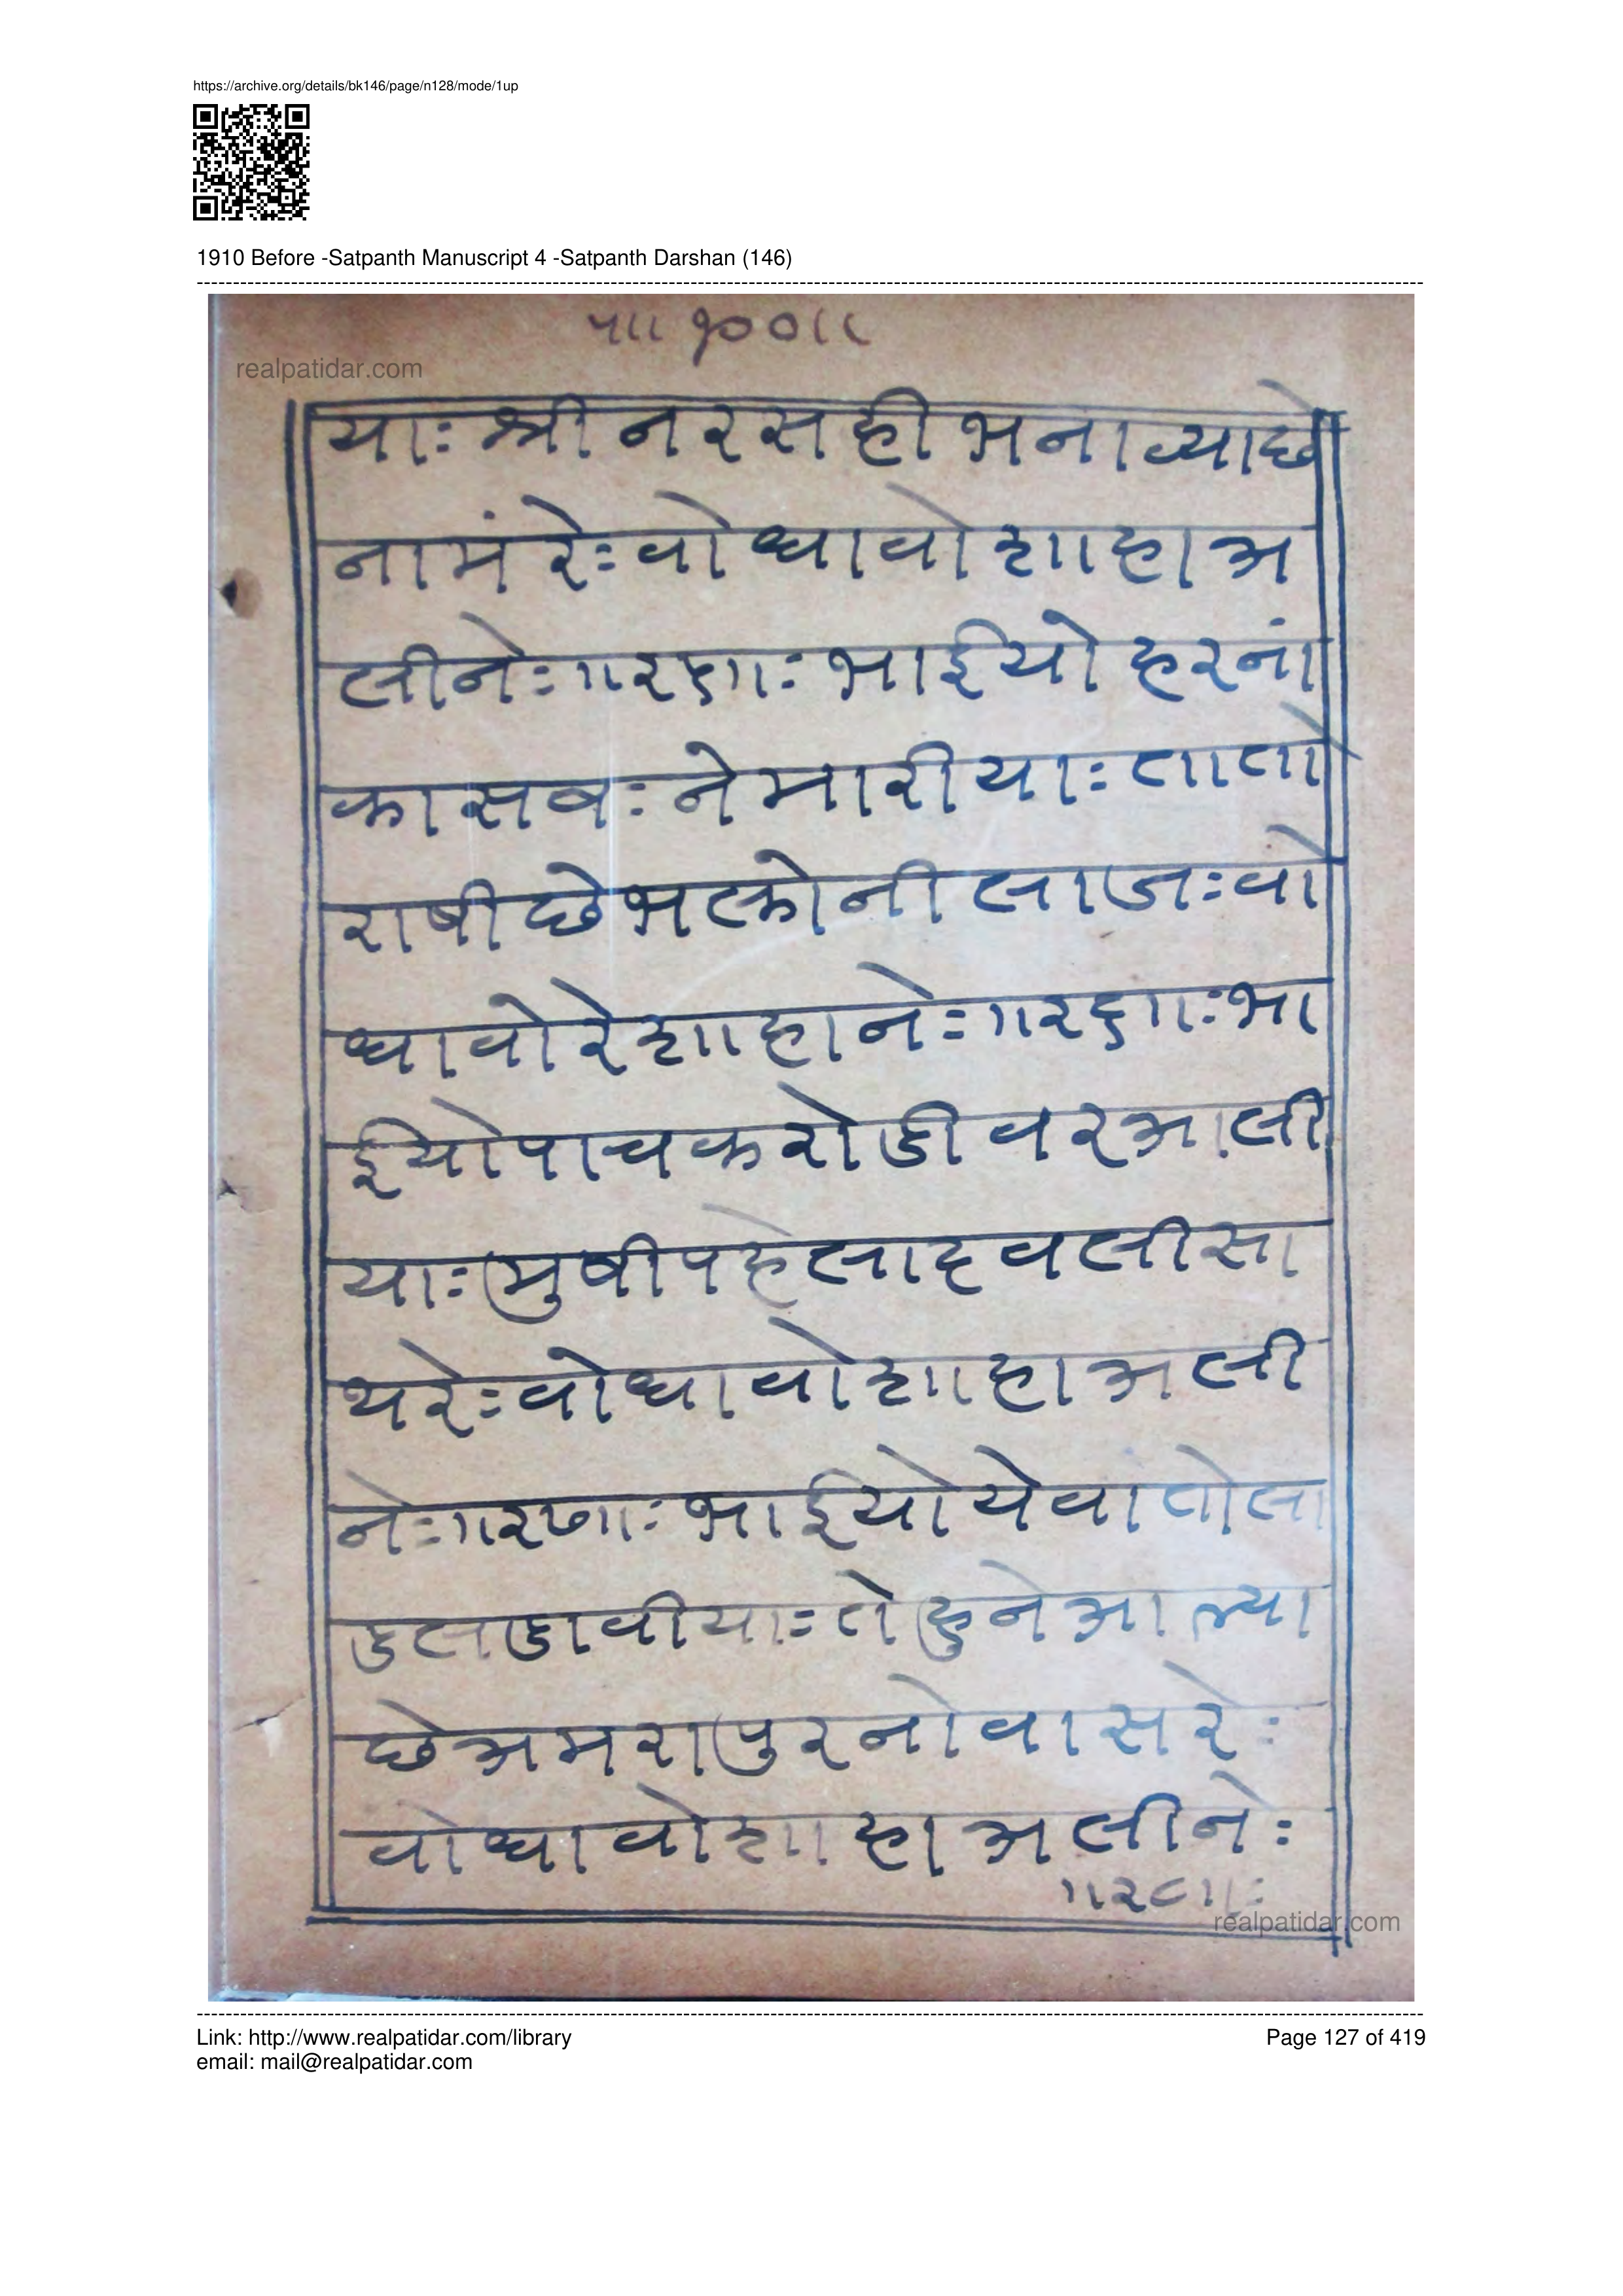 https://archive.org/details/bk146/page/n128/mode/1up
1910 Before -Satpanth Manuscript 4 -Satpanth Darshan (146)
१००॥
realpatidar.com
याः श्री नरसही भनाव्याछे
नामं रेः वो धावो शाहा अ
लीनेः ॥२५॥ः भाईयो हरनां
कासबः ने मारीयाः तातो
राषी छे भक्तोनी लाजः वो
धावो रे शाहा नेः ॥२६॥ः भा
ईयो पाच करोडी वर आली
याः मुषी पहेलाद वली सा
थरेः वो धावो शाहा अली
नेः ॥२७॥ः भाईयो येवां तोला
डलडावीयाः तेहुने आल्या
छे अमरापुर नो वास रेः
वो धावो शाहा अलीनेः
॥२८॥ः
realpatidar.com
Link: http://www.realpatidar.com/library
Page 127 of 419
email: mail@realpatidar.com